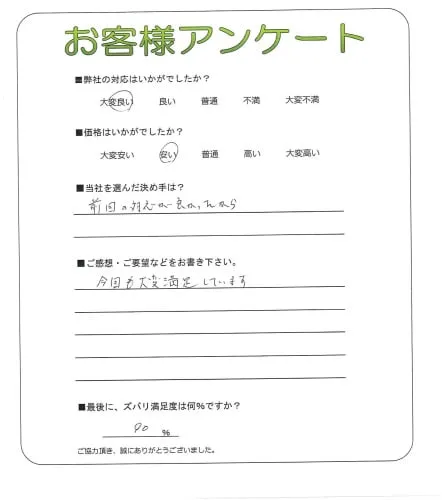 お客様アンケート
■弊社の対応はいかがでしたか？
大変良い 良い 普通 不満 大変不満
■価格はいかがでしたか？
大変安い 安い 普通 高い 大変高い
■当社を選んだ決め手は？
前回の対応が良かったから
■ご感想・ご要望などをお書き下さい。
今回も大変満足しています
■最後に、ズバリ満足度は何%ですか？
90 %
ご協力頂き、誠にありがとうございました。